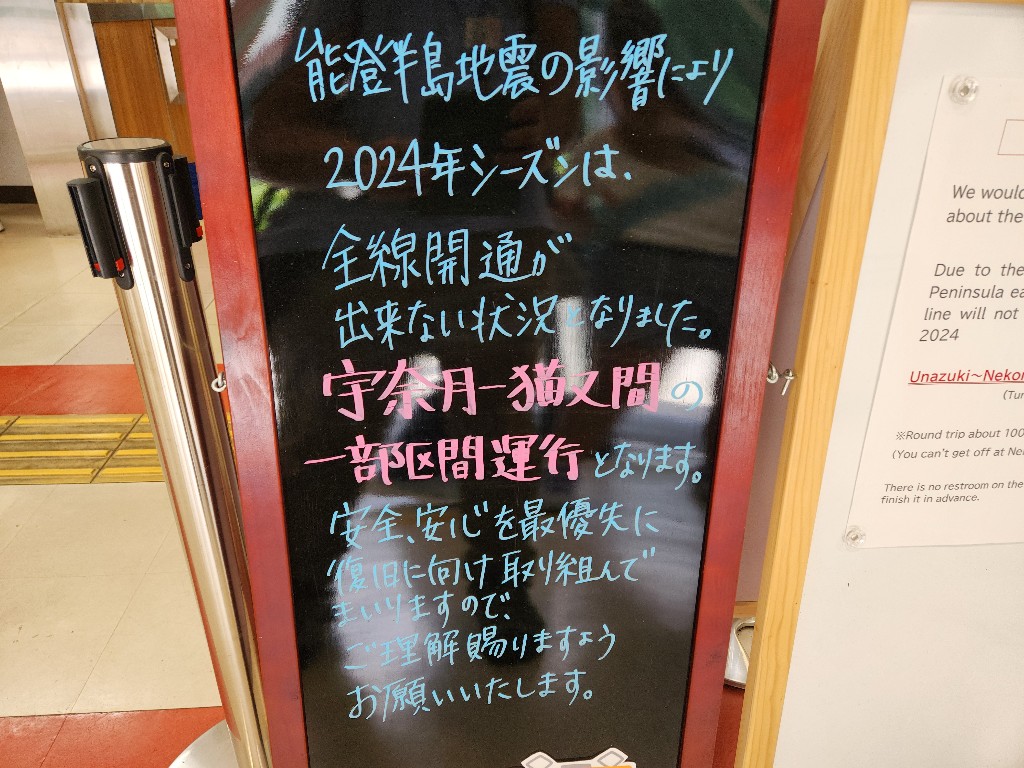 能登半島地震の影響により
2024年シーズンは、
全線開通が
出来ない状況となりました。
宇奈月ー猫又間の
一部区間運行となります。
安全、安心を最優先に
復旧に向け取り組んで
まいりますので、
ご理解賜りますよう
お願いいたします。
We would
about the
Due to the
Peninsula ea
line will not
2024
Unazuki~Nekor
(Tur
※Round trip about 100
(You can't get off at Ne
There is no restroom on the
finish it in advance.